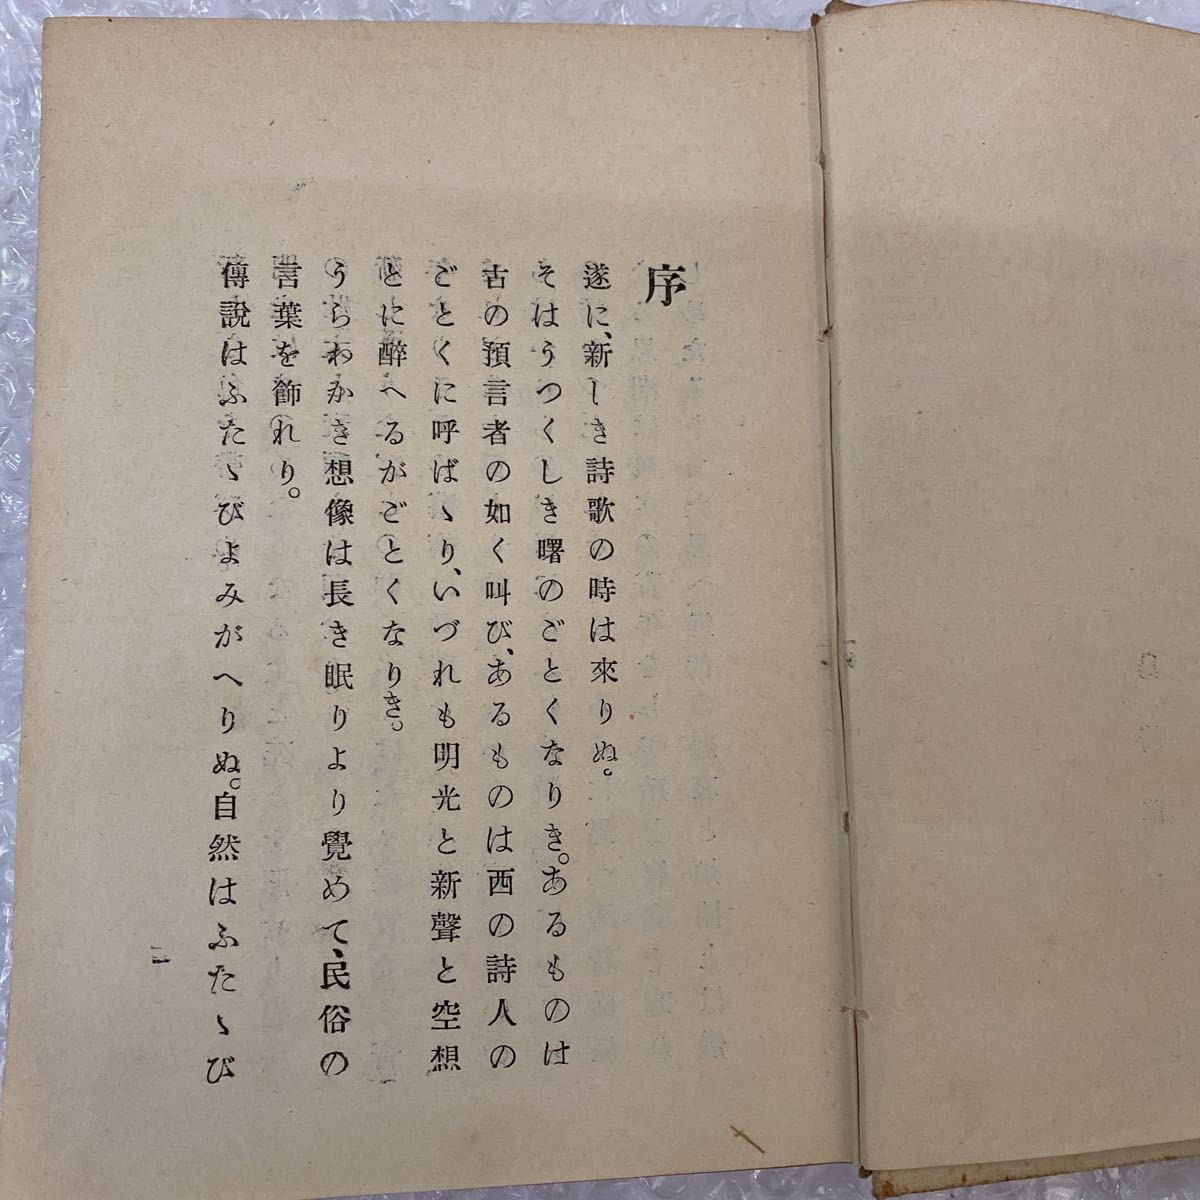 序
遂に、新しき詩歌の時は來りぬ。
そはうつくしき曙のごとくなりき。あるものは
古の預言者の如く叫び、あるものは西の詩人の
ごとくに呼ばゝり、いづれも明光と新聲と空想
とに醉へるがごとくなりき。
うらわかき想像は長き眠りより覺めて、民俗の
言葉を飾れり。
傳說はふたゝびよみがへりぬ。自然はふたゝび